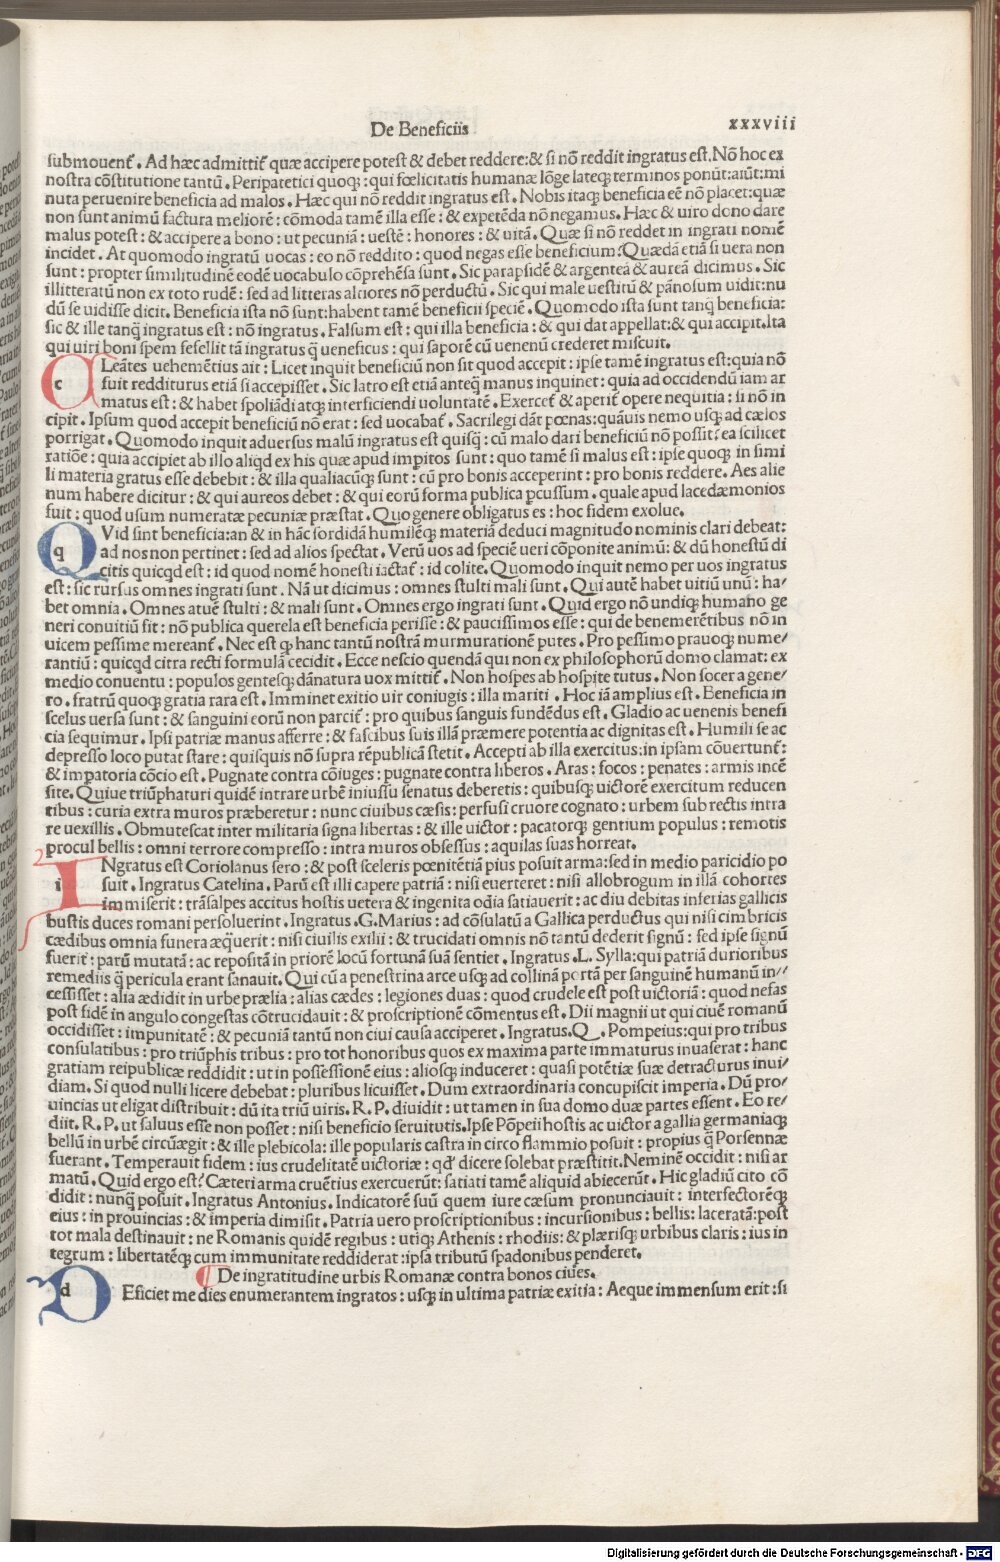 De Beneficiis
xxxviii
submouent᷑. Ad hæc admittit᷑ quæ accipere potest & debet reddere:& si nō reddit ingratus est. Nō hoc ex
nostra cōstitutione tantū. Peripatetici quoqꝫ:qui fœlicitatis humanæ lōge lateqꝫ terminos ponūt:aiūt:mi
nuta peruenire beneficia ad malos. Hæc qui nō reddit ingratus est. Nobis itaqꝫ beneficia eē nō placet:quæ
non sunt animū factura meliorē: cōmoda tamē illa esse: & expetēda nō negamus. Hæc & uiro dono dare
malus potest: & accipere a bono: ut pecuniā: uestē: honores: & uitā. Quæ si nō reddet in ingrati nomē
incidet. At quomodo ingratū uocas: eo nō reddito: quod negas esse beneficium? Quædā etiā si uera non
sunt: propter similitudinē eodē uocabulo cōprehēsa sunt. Sic parapsidē & argenteā & aureā dicimus. Sic
illitteratū non ex toto rudē: sed ad litteras altiores nō perductū. Sic qui male uestitū & pānosum uidit:nu
dū se uidisse dicit. Beneficia ista nō sunt:habent tamē beneficii speciē. Quomodo ista sunt tanq̄ beneficia:
sic & ille tanq̄ ingratus est: nō ingratus. Falsum est: qui illa beneficia: & qui dat appellat:& qui accipit.Ita
qui uiri boni spem fefellit tā ingratus q̄ ueneficus: qui saporē cū uenenū crederet miscuit.
c
CLeātes uehemētius ait: Licet inquit beneficiū non sit quod accepit: ipse tamē ingratus est:quia nō
fuit redditurus etiā si accepisset. Sic latro est etiā anteq̄ manus inquinet: quia ad occidendū iam ar
matus est: & habet spoliādi atqꝫ interficiendi uoluntatē. Exercet᷑ & aperit᷑ opere nequitia: si nō in
cipit. Ipsum quod accepit beneficiū nō erat: sed uocabat᷑. Sacrilegi dāt pœnas:quāuis nemo usqꝫ ad cælos
porrigat. Quomodo inquit aduersus malū ingratus est quisqꝫ: cū malo dari beneficiū nō possit? ea scilicet
ratiōe: quia accipiet ab illo aliqd ex his quæ apud impitos sunt: quo tamē si malus est: ipse quoqꝫ in simi
li materia gratus esse debebit: & illa qualiacūqꝫ sunt: cū pro bonis acceperint: pro bonis reddere. Aes alie
num habere dicitur: & qui aureos debet: & qui eorū forma publica pcussum. quale apud lacedæmonios
fuit: quod usum numeratæ pecuniæ præstat. Quo genere obligatus es: hoc fidem exolue.
q
QVid sint beneficia:an & in hāc sordidā humilēqꝫ materiā deduci magnitudo nominis clari debeat:
ad nos non pertinet: sed ad alios spectat. Verū uos ad speciē ueri cōponite animū: & dū honestū di
citis quicqd est: id quod nomē honesti iactat᷑: id colite. Quomodo inquit nemo per uos ingratus
est: sic rursus omnes ingrati sunt. Nā ut dicimus: omnes stulti mali sunt. Qui autē habet uitiū unū: ha/
bet omnia. Omnes atuē stulti: & mali sunt. Omnes ergo ingrati sunt. Quid ergo nō undiqꝫ humano ge
neri conuitiū fit: nō publica querela est beneficia perisse: & paucissimos esse: qui de benemerētibus nō in
uicem pessime mereant᷑. Nec est qꝫ hanc tantū nostrā murmurationē putes. Pro pessimo prauoqꝫ nume/
rantiū: quicqd citra recti formulā cecidit. Ecce nescio quendā qui non ex philosophorū domo clamat: ex
medio conuentu: populos gentesqꝫ dānatura uox mittit᷑. Non hospes ab hospite tutus. Non socer a gene/
ro. fratrū quoqꝫ gratia rara est. Imminet exitio uir coniugis: illa mariti. Hoc iā amplius est. Beneficia in
scelus uersa sunt: & sanguini eorū non parcit᷑: pro quibus sanguis fundēdus est. Gladio ac uenenis benefi
cia sequimur. Ipsi patriæ manus afferre: & fascibus suis illā præmere potentia ac dignitas est. Humili se ac
depresso loco putat stare: quisquis nō supra rēpublicā stetit. Accepti ab illa exercitus:in ipsam cōuertunt᷑:
& impatoria cōcio est. Pugnate contra cōiuges: pugnate contra liberos. Aras: focos: penates: armis incē
site. Quiue triūphaturi quidē intrare urbē iniussu senatus deberetis: quibusqꝫ uictorē exercitum reducen
tibus: curia extra muros præberetur: nunc ciuibus cæsis: perfusi cruore cognato: urbem sub rectis intra
re uexillis. Obmutescat inter militaria signa libertas: & ille uictor: pacatorqꝫ gentium populus: remotis
procul bellis: omni terrore compresso: intra muros obsessus: aquilas suas horreat.
i
INgratus est Coriolanus sero: & post sceleris pœnitētiā pius posuit arma:sed in medio paricidio po
suit. Ingratus Catelina. Parū est illi capere patriā: nisi euerteret: nisi allobrogum in illā cohortes
immiserit: trāsalpes accitus hostis uetera & ingenita odia satiauerit: ac diu debitas inferias gallicis
bustis duces romani persoluerint. Ingratus .G. Marius: ad cōsulatū a Gallica perductus qui nisi cimbricis
cædibus omnia funera æq̄uerit: nisi ciuilis exilii: & trucidati omnis nō tantū dederit signū: sed ipse signū
fuerit: parū mutatā: ac repositā in priorē locū fortunā suā sentiet. Ingratus .L. Sylla:qui patriā durioribus
remediis q̄ pericula erant sanauit. Qui cū a penestrina arce usqꝫ ad collinā portā per sanguinē humanū in//
cessisset: alia ædidit in urbe prælia: alias cædes: legiones duas: quod crudele est post uictoriā: quod nefas
post fidē in angulo congestas cōtrucidauit: & proscriptionē cōmentus est. Dii magni ut qui ciuē romanū
occidisset: impunitatē: & pecuniā tantū non ciui causa acciperet. Ingratus. Q. Pompeius:qui pro tribus
consulatibus: pro triūphis tribus: pro tot honoribus quos ex maxima parte immaturus inuaserat: hanc
gratiam reipublicæ reddidit: ut in possessionē eius: aliosqꝫ induceret: quasi potētiæ suæ detracturus inui/
diam. Si quod nulli licere debebat: pluribus licuisset. Dum extraordinaria concupiscit imperia. Dū pro/
uincias ut eligat distribuit: dū ita triū uiris. R. P. diuidit: ut tamen in sua domo duæ partes essent. Eo re/
diit. R. P. ut saluus esse non posset: nisi beneficio seruitutis.Ipse Pōpeii hostis ac uictor a gallia germaniaqꝫ
bellū in urbē circūægit: & ille plebicola: ille popularis castra in circo flammio posuit: propius q̄ Porsennæ
fuerant. Temperauit fidem: ius crudelitatē uictoriæ: qd' dicere solebat præstitit.Neminē occidit: nisi ar
matū. Quid ergo est? Cæteri arma cruētius exercuerūt: satiati tamē aliquid abiecerūt. Hic gladiū cito cō
didit: nunq̄ posuit. Ingratus Antonius. Indicatorē suū quem iure cæsum pronunciauit: intersectorēqꝫ
eius: in prouincias: & imperia dimisit. Patria uero proscriptionibus: incursionibus: bellis: laceratā:post
tot mala destinauit: ne Romanis quidē regibus: utiqꝫ Athenis: rhodiis: & plærisqꝫ urbibus claris: ius in
tegrum: libertatēqꝫ cum immunitate reddiderat:ipsa tributū spadonibus penderet.
¶ De ingratitudine urbis Romanæ contra bonos ciues.
d
DEficiet me dies enumerantem ingratos: usqꝫ in ultima patriæ exitia: Aeque immensum erit:si
Digitalisierung gefördert durch die Deutsche Forschungsgemeinschaft - DFG